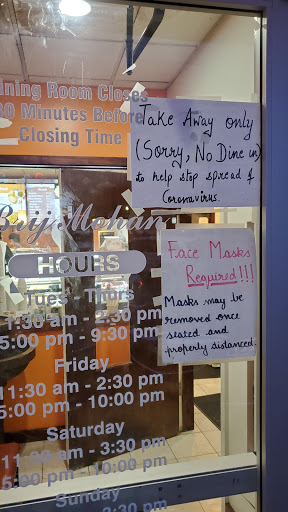 ining Room Closes
30 Minutes Before
Closing Time
Take Away only
(Sorry, No Dine in)
to help stop spread of
Coronavirus.
Brij Mohan
Face Masks
Required!!!
Masks may be
removed once
seated and
properly distanced.
HOURS
Tues - Thurs
1:30 am - 2:30 pm
5:00 pm - 9:30 pm
Friday
11:30 am - 2:30 pm
5:00 pm - 10:00 pm
Saturday
11:30 am - 3:30 pm
5:00 pm - 10:00 pm
Sunday